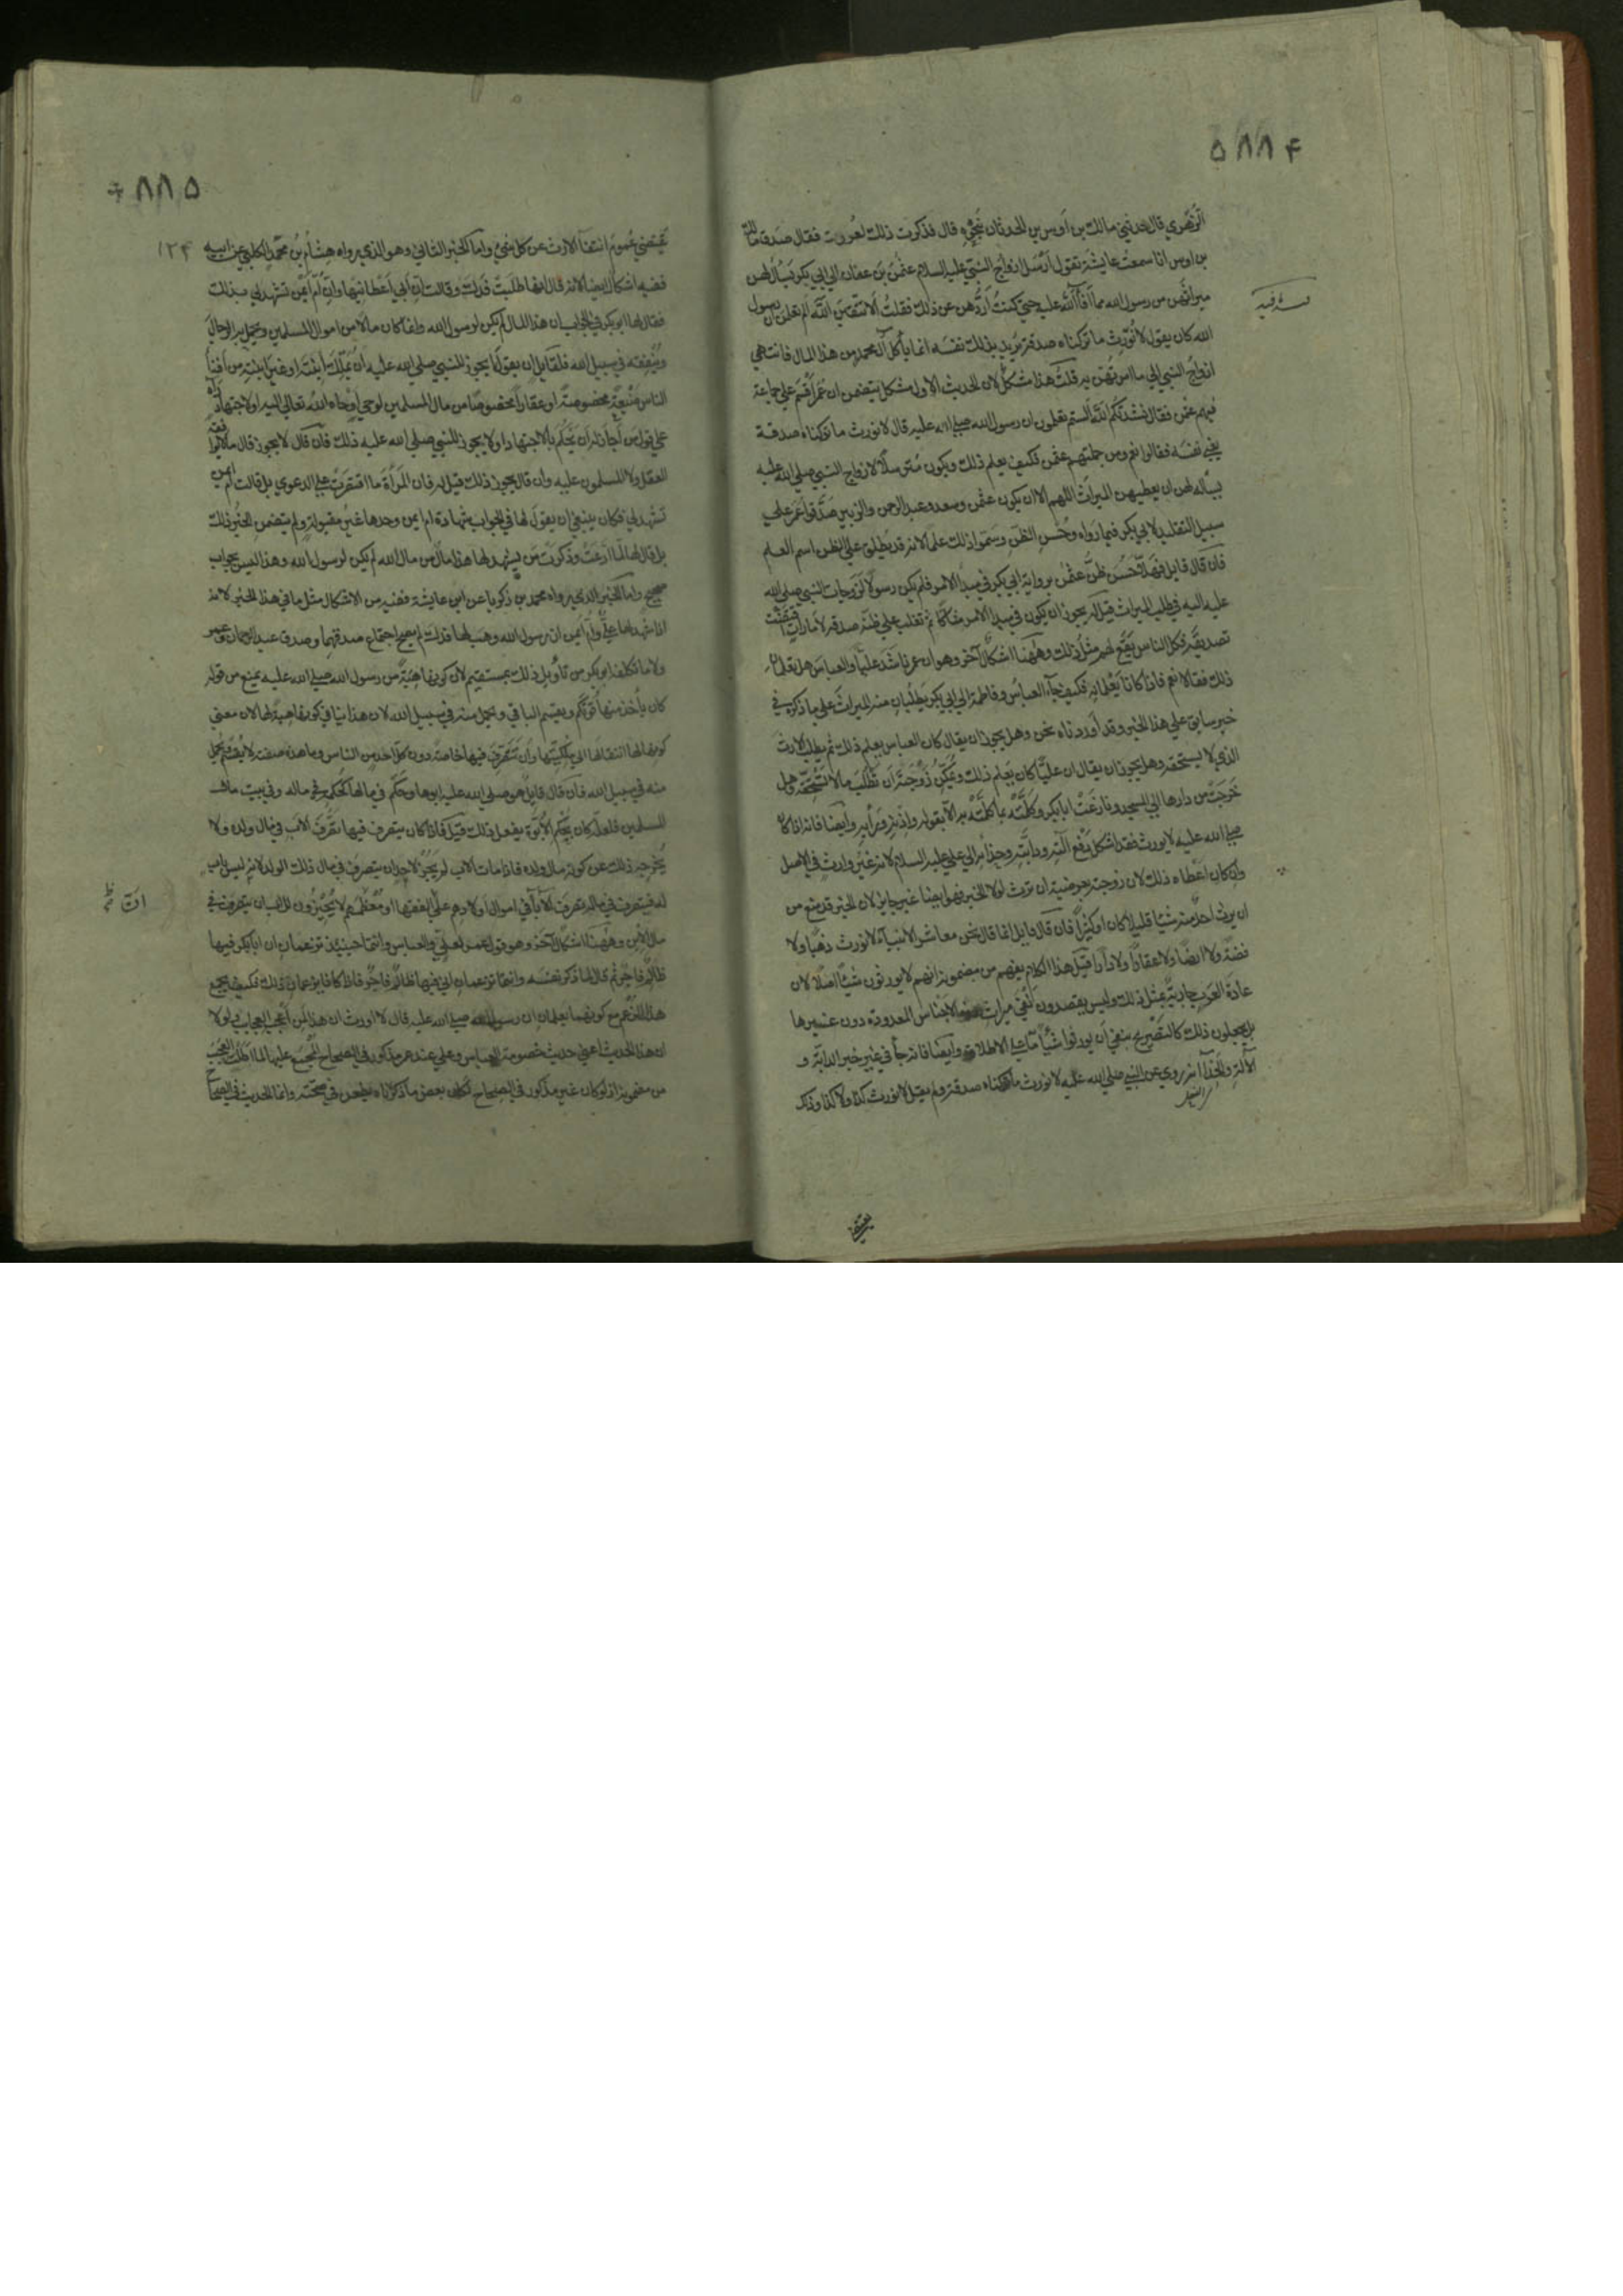 ۵۸۸۴
الزهري قال حدثني مالك بن أوس بن الحدثان بنحوه قال فذكرت ذلك لعروة فقال صدق مالك
بن اوس انا سمعت عايشة تقول أرسل ازواج النبي عليه السلام عثمن بن عفان الي ابي بكر يسأل لهن
ميراثهن من رسول الله مما أفاء الله عليه حتي كنت أردهن عن ذلك فقلت ألا تتقين الله ألم تعلمن ان رسول
الله كان يقول لا نورث ما تركناه صدقة يريد بذلك نفسه انما يأكل آل محمد من هذا المال فانتهي
ازواج النبي الي ما امرتهن به قلت هذا مشكل لان الحديث الاول مشكل يتضمن ان عمر أقسم علي جماعة
فيهم عثمن فقال نشدتكم الله ألستم تعلمون ان رسول الله صلي الله عليه قال لا نورث ما تركناه صدقة
يعني نفسه فقالوا نعم ومن جملتهم عثمن فكيف يعلم ذلك ويكون مترسلا لازواج النبي صلي الله عليه
يسأله لهن ان يعطيهن الميراث اللهم الا ان يكون عثمن وسعد وعبد الرحمن والزبير صدقوا عمر علي
سبيل التقليد لابي بكر فيما رواه وحسن الظن وسموا ذلك علما لانه قد يطلق علي الظن اسم العلم
فان قال قايل فهلا حسن ظن عثمن برواية ابي بكر في مبدأ الامر فلم يكن رسولا لزوجات النبي صلي الله
عليه اليه في طلب الميراث قيل له يجوز ان يكون في مبدأ الامر شاكا ثم تغلب علي ظنه صدقه لأمارات اقتضت
تصديقه فكل الناس يقع لهم مثل ذلك وههنا اشكال آخر وهو ان عمر ناشد عليا والعباس هل تعلمان
ذلك فقالا نعم فاذا كانا يعلمانه فكيف جآء العباس وفاطمة الي ابي بكر يطلبان منه الميراث علي ما ذكره في
خبر سابق علي هذا الخبر وقد أوردناه نحن وهل يجوز ان يقال كان العباس يعلم ذلك ثم يطلب الارث
الذي لا يستحقه وهل يجوز ان يقال ان عليا كان يعلم ذلك ويمكن زوجته أن تطلب مالا تستحقه وهل
خرجت من دارها الي المسجد ونازعت ابا بكر وكلمته بما كلمته به الا بقوله واذنه ورأيه وأيضا فانه اذا كان
صلي الله عليه لا يورث فقد اشكل دفع آلته ودابته وحذائه الي علي عليه السلام لانه غير وارث في الاصل
وان كان اعطاه ذلك لان زوجته بعرضية ان ترث لولا الخبر فهو ايضا غير جايز لان الخبر قد منع من
ان يرث احد منه شيئا قليلا كان او كثيرا فان قال قايل انما قال نحن معاشر الانبيآء لا نورث ذهبا ولا
فضة ولا ارضا ولا عقارا ولا دارا قيل هذا الكلام يفهم من مضمونه انهم لا يورثون شيئا اصلا لان
عادة العرب جارية بمثل ذلك وليس يقصدون نفي ميراث هذه الاجناس المعدودة دون غيرها
بل يجعلون ذلك كالتصريح بنفي أن يورثوا شيأ ما علي الاطلاق وأيضا فانه جآ في خبر الدابة و
الآلة والحذآ انه روي عن النبي صلي الله عليه لا نورث ما تركناه صدقة ولم يقل لا نورث كذا ولا كذا وذلك
يقتضي
۸۸۵
۱۲۴
يقتضي عموم انتفآ الارث عن كل شيء واما الخبر الثاني وهو الذي رواه هشام بن محمد الكلبي عن ابيه
ففيه اشكال ايضا لانه قال انها طلبت فدك وقالت ان أبي أعطانيها وان أم أيمن تشهد لي بذلك
فقال لها ابو بكر في الجواب ان هذا المال لم يكن لرسول الله وانما كان مالا من اموال المسلمين يحمل به الرجال
وينفقه في سبيل الله فلقايل ان يقول أيجوز للنبي صلي الله عليه ان يملك ابنته او غير ابنته من أفنآ
الناس ضيعة مخصوصة او عقارا مخصوصا من مال المسلمين لوحي أوحاه الله تعالي اليه او لاجتهاد رأيه
علي قول من أجاز له ان يحكم بالاجتهاد او لا يجوز للنبي صلي الله عليه ذلك فان قال لا يجوز قال ما لا يوافقه
العقل ولا المسلمون عليه وان قال يجوز ذلك قيل له فان المرأة ما اقتصرت علي الدعوي بل قالت أم أيمن
تشهد لي فكان ينبغي ان يقول لها في الجواب شهادة ام ايمن وحدها غير مقبولة ولم يتضمن الخبر ذلك
بل قال لها لما ادعت وذكرت من يشهد لها هذا مال من مال الله لم يكن لرسول الله وهذا ليس بجواب
صحيح واما الخبر الذي رواه محمد بن زكريا عن ابن عايشة ففيه من الاشكال مثل ما في هذا الخبر لانه
اذا شهد لها علي وام ايمن ان رسول الله وهب لها فدك لم يصح اجتماع صدقهما وصدق عبد الرحمان وعمر
ولا ما تكلفه ابو بكر من تأويل ذلك بمستقيم لان كونها هبة من رسول الله صلي الله عليه يمنع من قوله
كان يأخذ منها قوتكم ويقسم الباقي ويحمل منه في سبيل الله لان هذا ينافي كونها هبة لها لان معني
كونها لها انتقالها الي ملكيتها وان تتصرف فيها خاصة دون كل احد من الناس وما هذه صفته لا يقسم ويحمل
منه في سبيل الله فان قال قايل هو صلي الله عليه ابوها وحكمه في مالها كحكمه في ماله وفي بيت مال
المسلمين فلعله كان بحكم الأبوة يفعل ذلك قيل فاذا كان يتصرف فيها تصرف الاب في مال ولده ولا
يخرجه ذلك عن كونه مال ولده فاذا مات الاب لم يجز لاحد ان يتصرف في مال ذلك الولد لانه ليس باب
له فيتصرف في ماله تصرف الآبآ في اموال اولادهم علي ان الفقهآ او معظمهم لا يجيزون للاب ان يتصرف في
مال الابن وههنا اشكال آخر وهو قول عمر لعلي والعباس وانتما حينئذ تزعمان ان ابا بكر فيها
ظالم فاجر ثم قال لما ذكر نفسه وانتما تزعمان اني فيها ظالم فاجر فاذا كانا يزعمان ذلك فكيف يجتمع
هذا الزعم مع كونهما يعلمان ان رسول الله صلي الله عليه قال لا اورث ان هذا لمن أعجب العجايب ولولا
ان هذا الحديث أعني حديث خصومة العباس وعلي عند عمر مذكور في الصحاح المجمع عليها لما اطلت العجب
من مضمونه اذ لو كان غير مذكور في الصحاح لكان بعض ما ذكرناه يطعن في صحته وانما الحديث في الصحاح